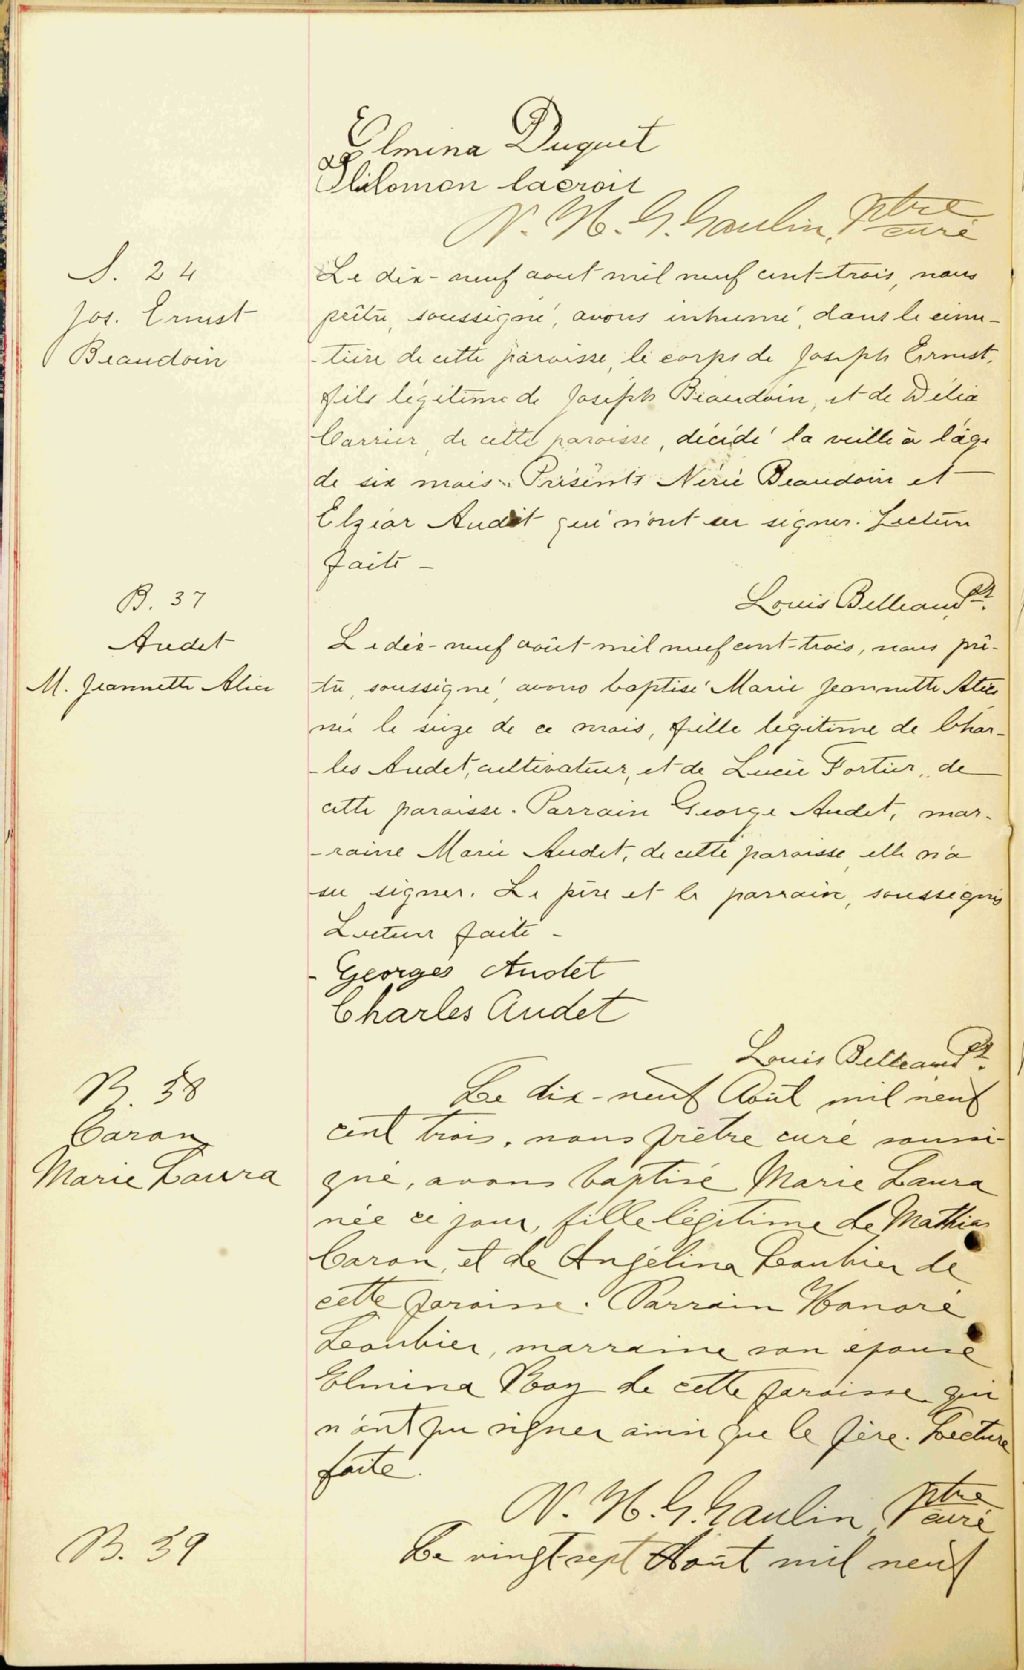 Elmina Duquet
Philomen lacroix
N. H. G. Gaulin, Ptre curé
S. 24
Jos. Ernest
Beaudoin
Le dix-neuf aout mil neuf cent-trois, nous
prêtre, soussigné, avons inhumé, dans le cime-
-tière de cette paroisse, le corps de Joseph Ernest,
fils légitime de Joseph Beaudoin, et de Délia
Carrier, de cette paroisse, décédé la veille à l'âge
de six mois. Présents Nérée Beaudoin et
Elzéar Audet qui n'ont su signer. Lecture
faite -
Louis Belleau, Ptr.
B. 37
Audet
M. Jeannette Alice
Le dix-neuf août mil neuf cent-trois, nous prê-
tre, soussigné, avons baptisé Marie Jeannette Alice
née le seize de ce mois, fille légitime de Char-
-les Audet, cultivateur, et de Lucie Fortier, de
cette paroisse. Parrain George Audet, mar-
-raine Marie Audet, de cette paroisse, elle n'a
su signer. Le père et le parrain, soussignés
Lecture faite -
Georges Audet
Charles Audet
Louis Belleau, Ptr.
B. 38
Caron
Marie Laura
Le dix-neuf Août mil neuf
cent trois, nous prêtre curé soussi-
gné, avons baptisé Marie Laura
née ce jour, fille légitime de Mathias
Caron, et de Angélina Loubier de
cette paroisse. Parrain Honoré
Loubier, marraine son épouse
Elmina Roy de cette paroisse qui
n'ont pu signer ainsi que le père. Lecture
faite.
N. H. G. Gaulin, Ptre curé
B. 39
Le vingt-sept Août mil neuf